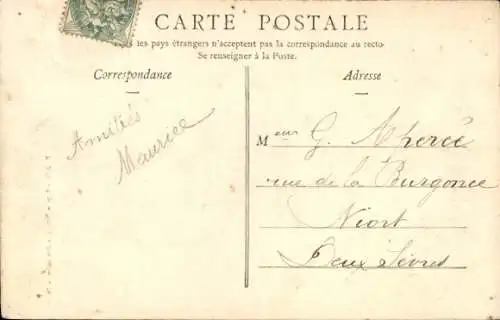 CARTE POSTALE
Tous les pays étrangers n'acceptent pas la correspondance au recto
Se renseigner à la Poste.
Correspondance
Amitiés
Maurice
Adresse
Meur G.
rue de la Burgonce
Niort
Deux Sèvres